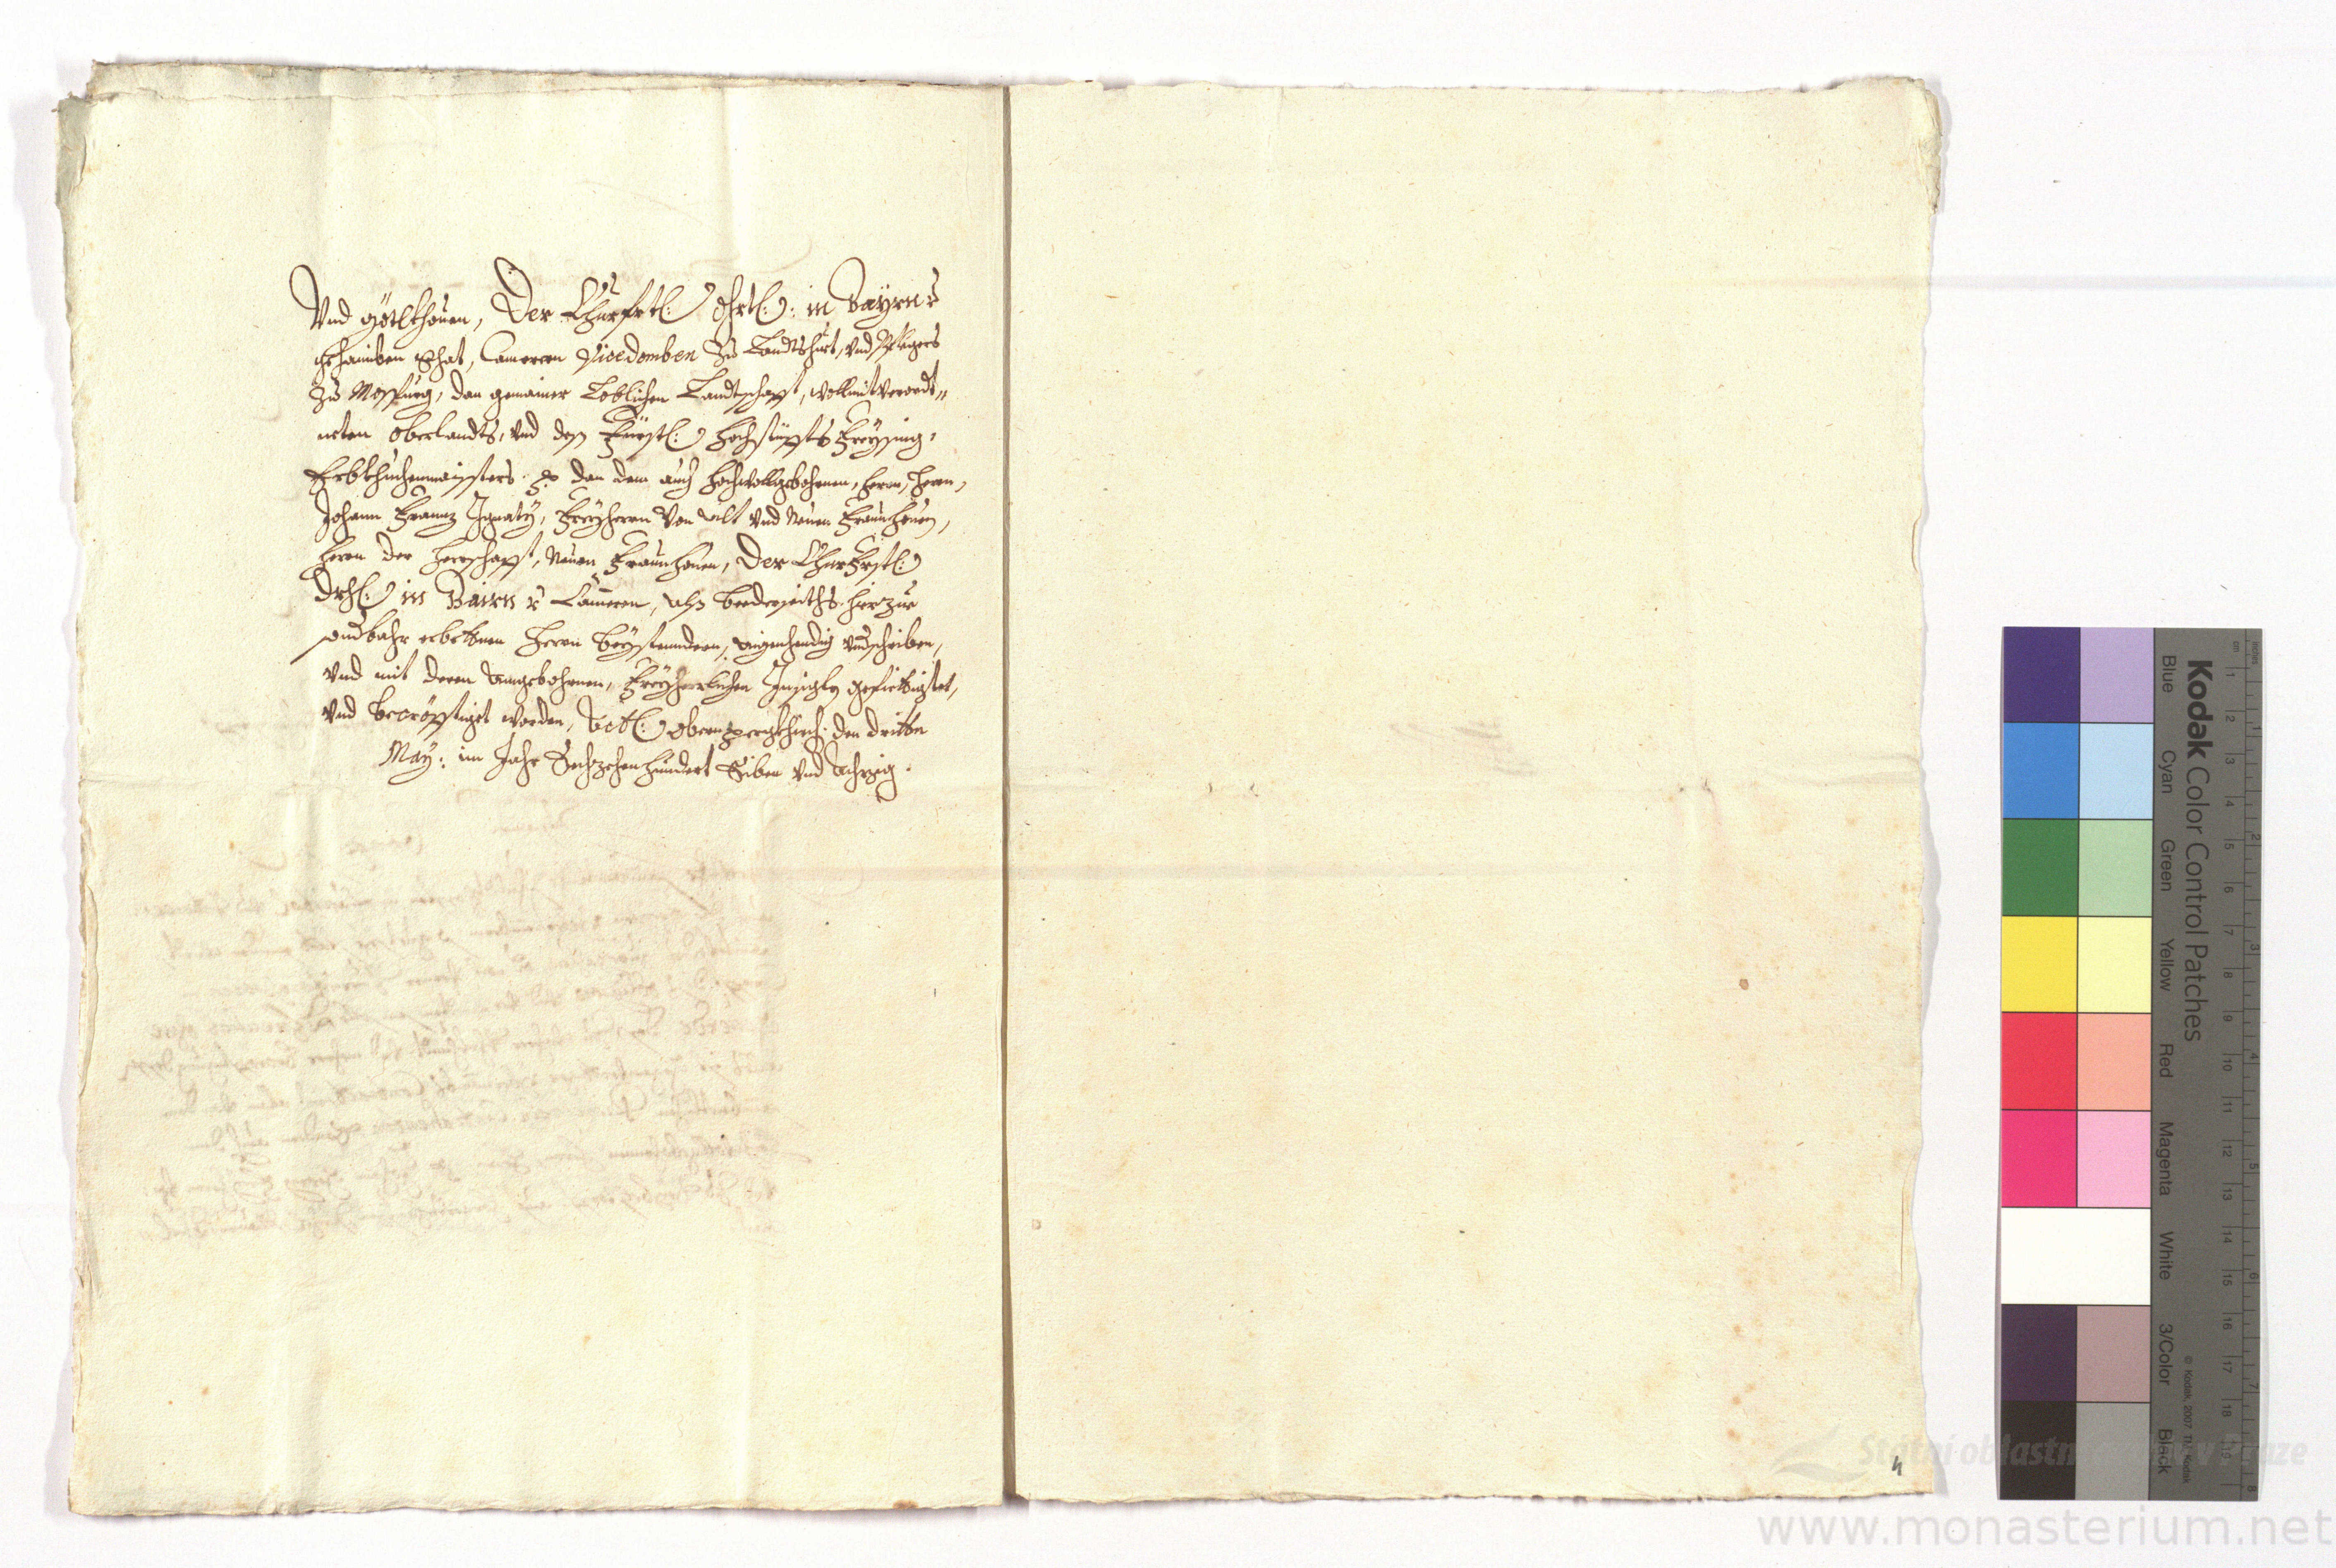 Vnd Göttkhouen, Der Churfrtl: Drtl: in Bayrn ꝛ
gehaimben Rhat, Cameren Vicedomben Zu Landtshuet, vnd Pflegers
Zu Mospurg, dan gemainer Loblichen Landtschafft, wollmitverordt„
neten Oberlandts, vnd dess Fürstl: Hochstüffts Freysing,
Erbkhuchenmaisters ꝛ dan dem auch Hochwollgebohrnen, Herrn, Herrn,
Johann Frannz Ignaty, Freyherrn Von Alt vnd Neuen Fraunhouen,
Herrn der Herrschafft, Neuen Fraunhouen, Der ChurFrstl:
Drhl: in Bairn ꝛ Cameren, Alss beederseiths hierzue
erbettnen Herrn Beystenndern, aigenhendig vndschriben,
vnd mit deren Anngebohrnen, Freyherrlichen Insigln gefertigtet,
vnd becröfftiget worden, den dritten
May: im Jahr Sechzehenhundert Siben vnd Achzig.
4
Kodak Color Control Patches
Blue
Cyan
Green
Yellow
Red
Magenta
White
3/Color
Black
© Kodak, 2007 TM: Kodak
inches
cm
1 2 3 4 5 6 7 8 9 10 11 12 13 14 15 16 17 18 19
1 2 3 4 5 6 7 8
Státní oblastní archiv v Praze
www.monasterium.net